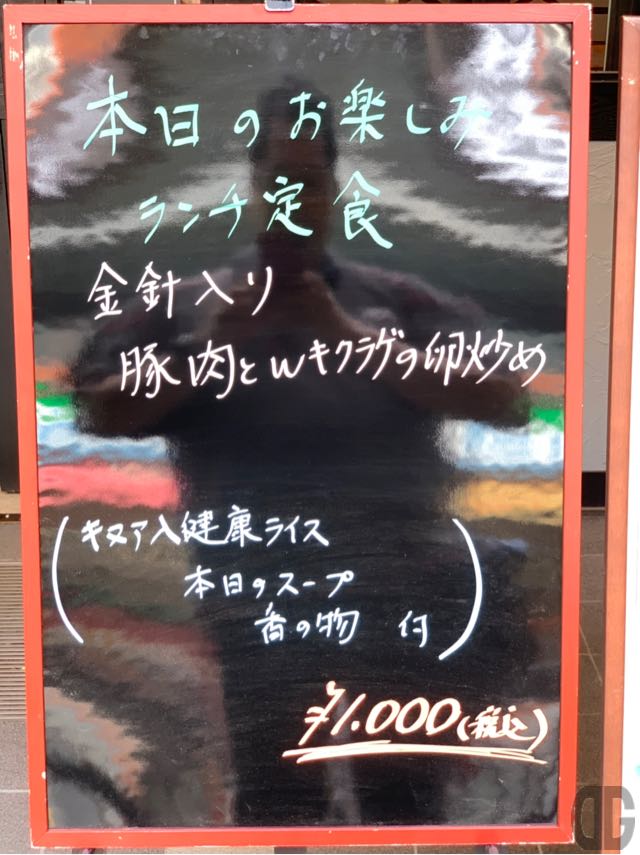 本日のお楽しみ
ランチ定食
金針入り
豚肉とWキクラゲの卵炒め
(キヌア入健康ライス
本日のスープ
香の物 付)
¥1.000(税込)
DG